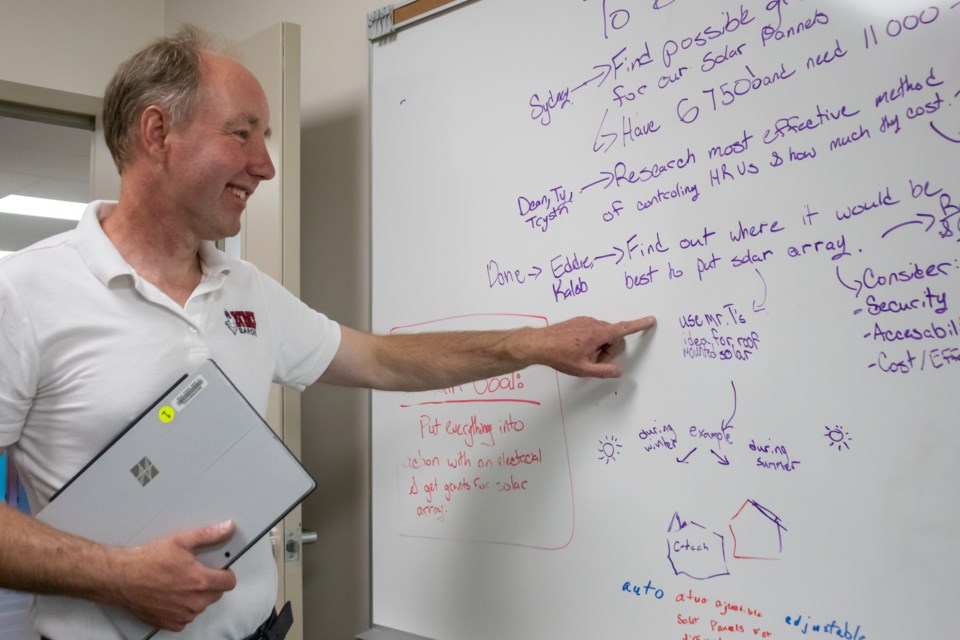 To
Sydney → Find possible
for our Solar Pannels
↳ Have 6 750's and need 11 000
Dean, Ty,
Trystn → Research most effective method
of controling HRVs & how much they cost.
Done → Eddie,
Kaleb → Find out where it would be
best to put solar array.
Consider:
- Security
- Accesabil
- Cost/Effe
use Mr. T's
idea for roof
mounted solar
example
during
winter
during
summer
C-tech
auto
Solar Panels for
adjustable
Goal:
Put everything into
action with an electrical
& get grants for solar
array.